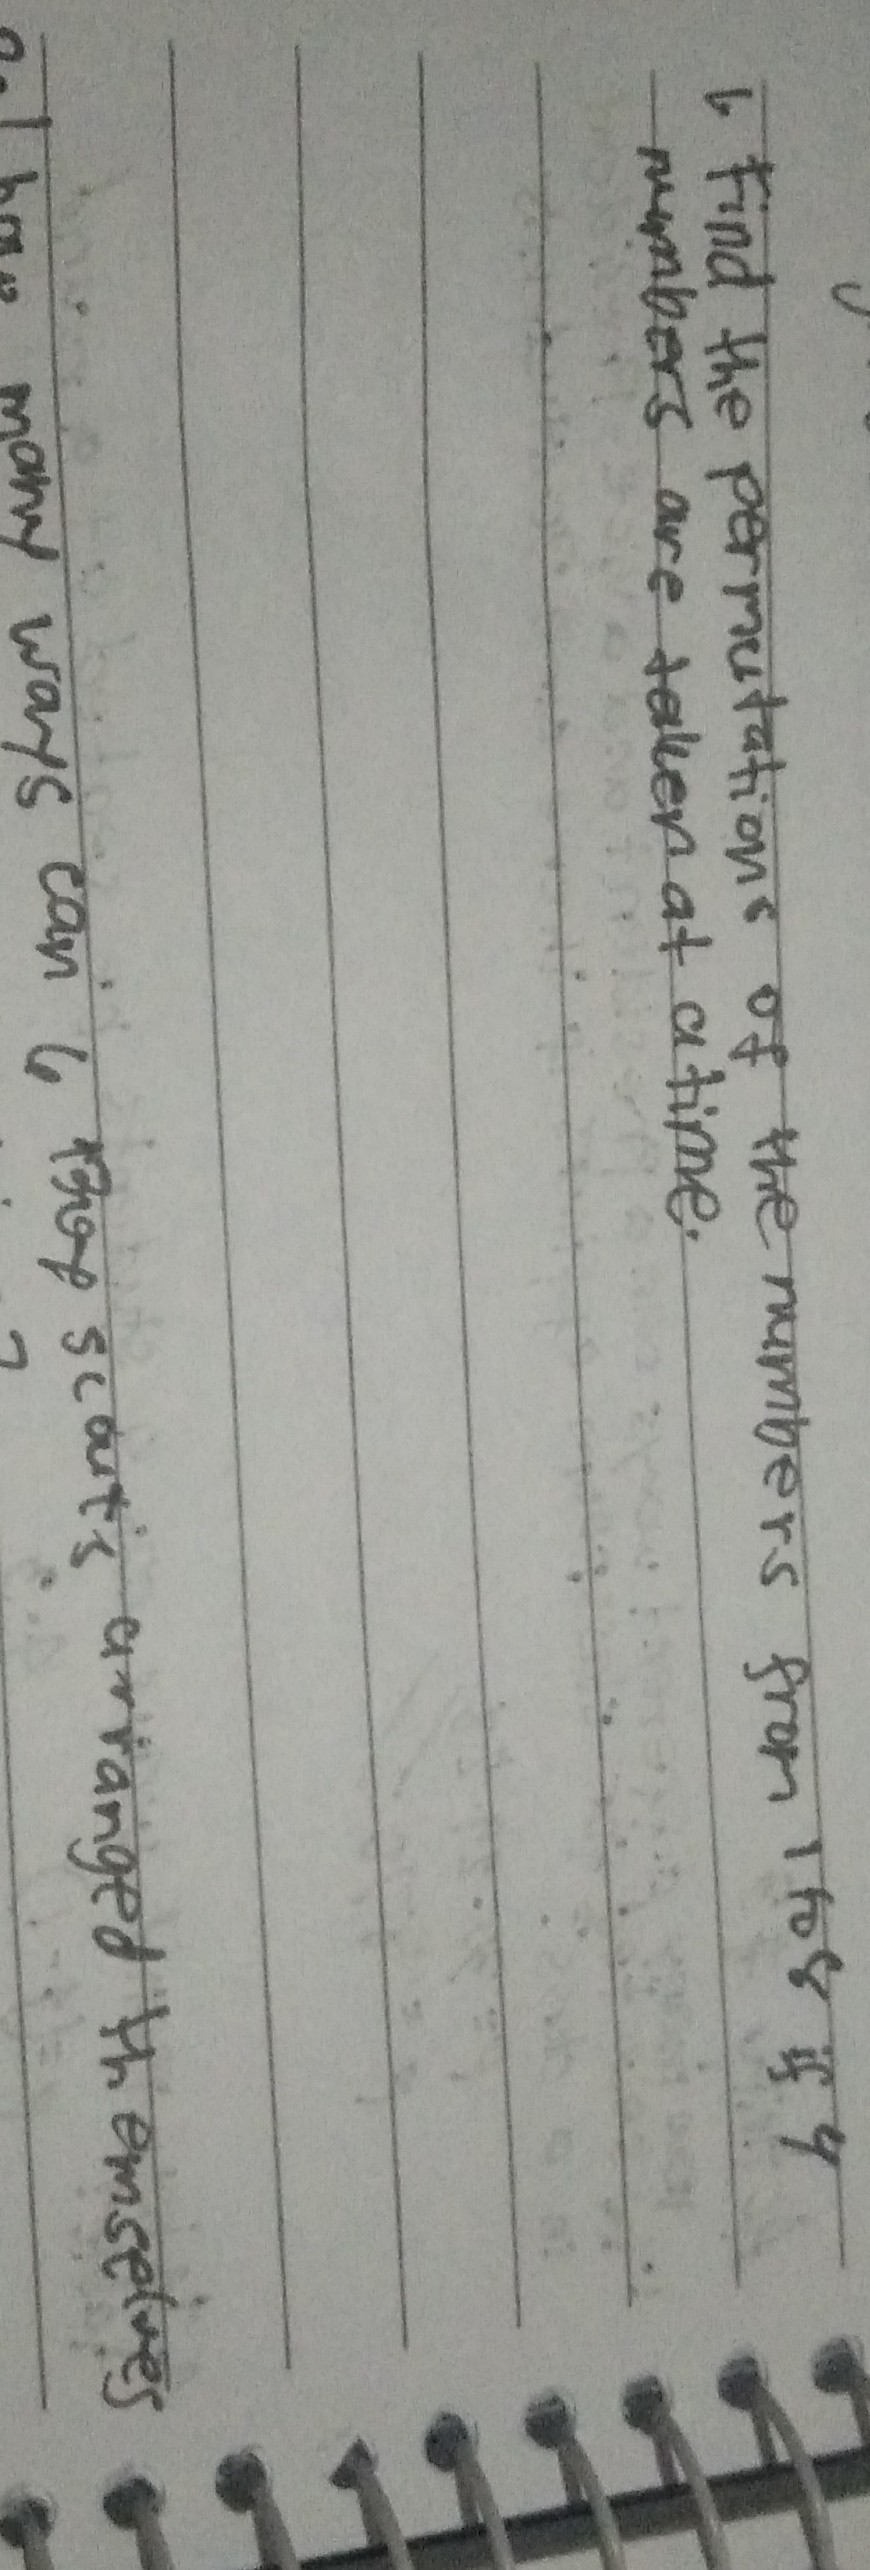 1. Find the permutations of the numbers from 1 to 8 if 4
numbers are taken at a time.
2. I how many ways can 6 scouts arranged themselves